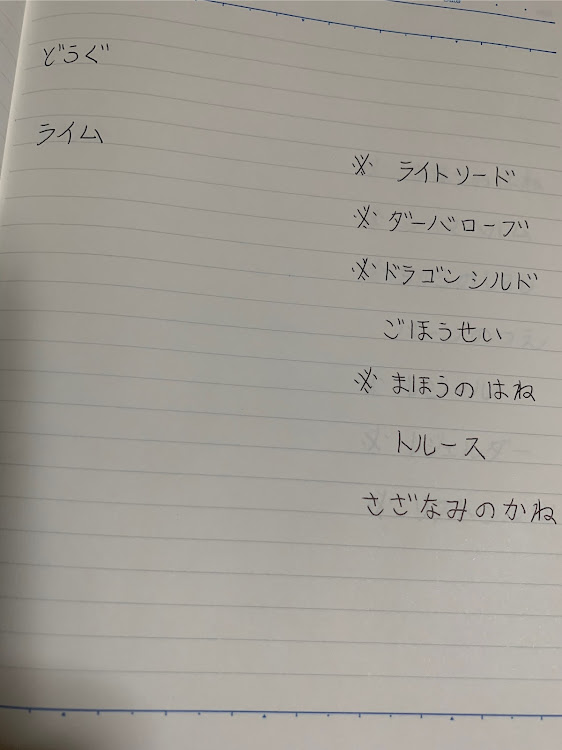 どうぐ
ライム
※ ライトソード
※ ダーバローブ
※ ドラゴンシルド
ごほうせい
※ まほうの はね
トルース
さざなみのかね